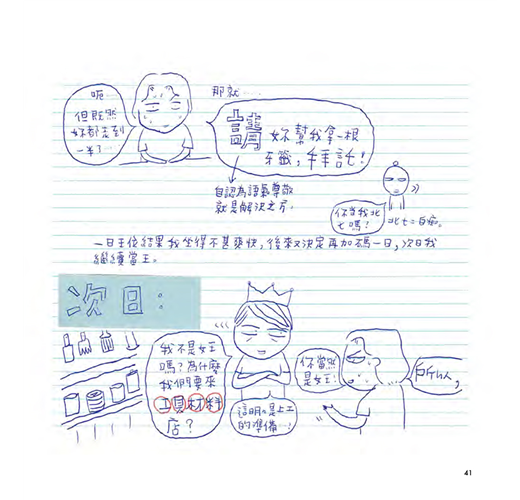 呃…
但既然
妳都走到
一半了…
那就……
請
妳幫我拿一根
牙籤，拜託！
自認為語氣尊敬
就是解決之方。
你當我北
七嗎！
北七=白痴。
一日王位結果我坐得不甚爽快，後來又決定再加碼一日，次日我
繼續當王。
次日：
我不是女王
嗎？為什麼
我們要來
工具材料
店？
這明明是上工
的準備…！
你當然
是女王！
所以，
41